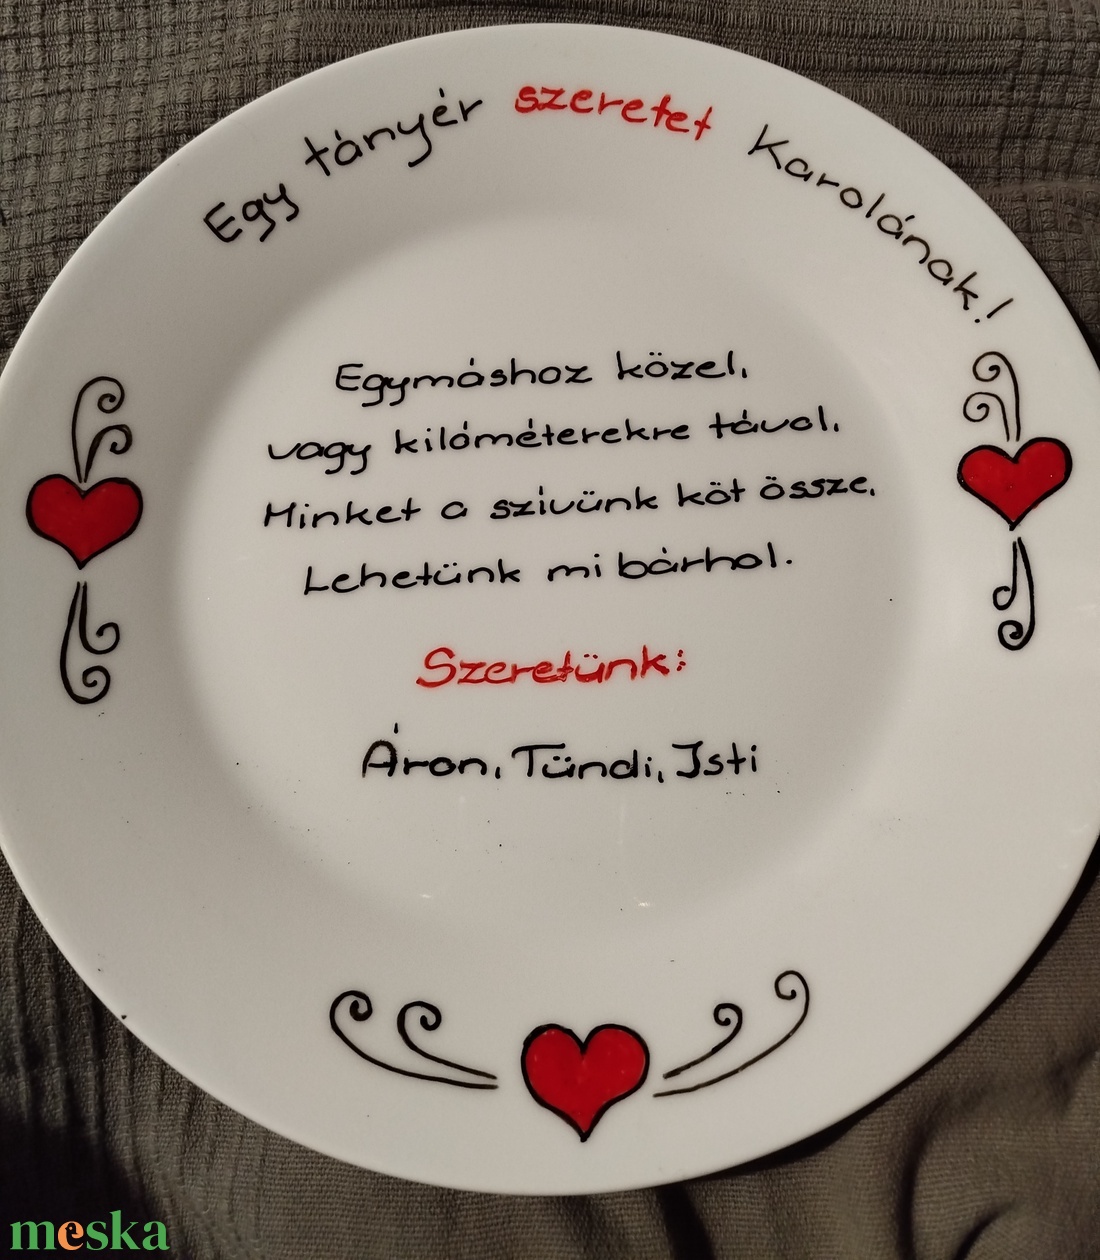 Egy tányér szeretet Karolának!
Egymáshoz közel,
vagy kilóméterekre távol,
Minket a szívünk köt össze,
Lehetünk mi bárhol.
Szeretünk:
Áron, Tündi, Isti
meska